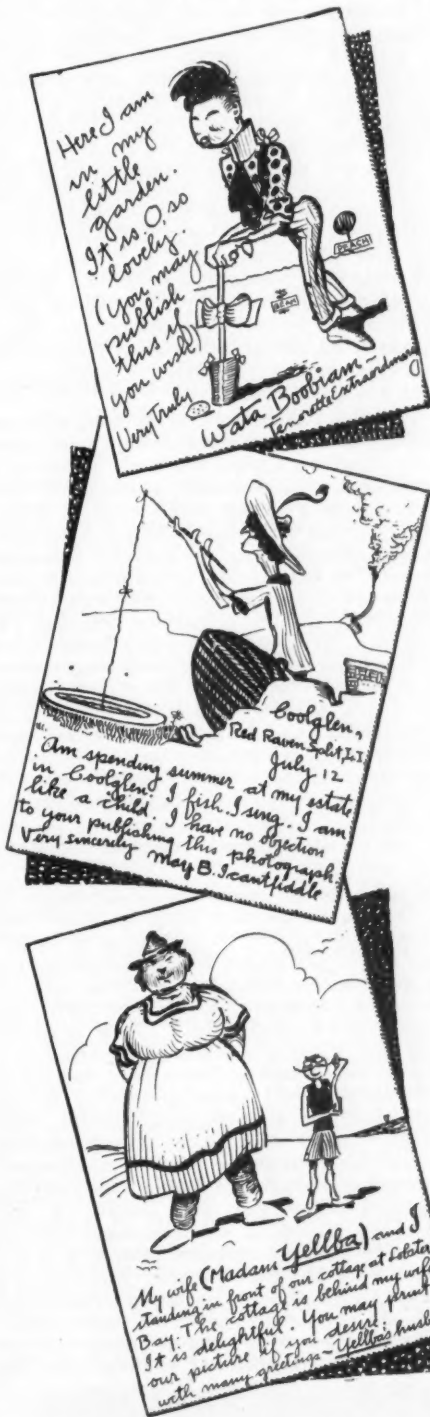 Here I am
in my
little
garden.
It is. O. so
lovely.
(you may
publish
this if
you wish)
Very Truly
Wata Boobiam –
Tenorette Extraordinary
PEACH
BEAN
Coolglen,
Red Raven Split, L.I.
July 12
Am spending summer at my estate
in Coolglen. I fish. I sing. I am
like a child. I have no objection
to your publishing this photograph
Very sincerely May B. Icantfiddle
My wife (Madam Yellba) and I
standing in front of our cottage at Lobster
Bay. The cottage is behind my wife
It is delightful. You may print
our picture if you desire:
with many greetings – Yellbas husb